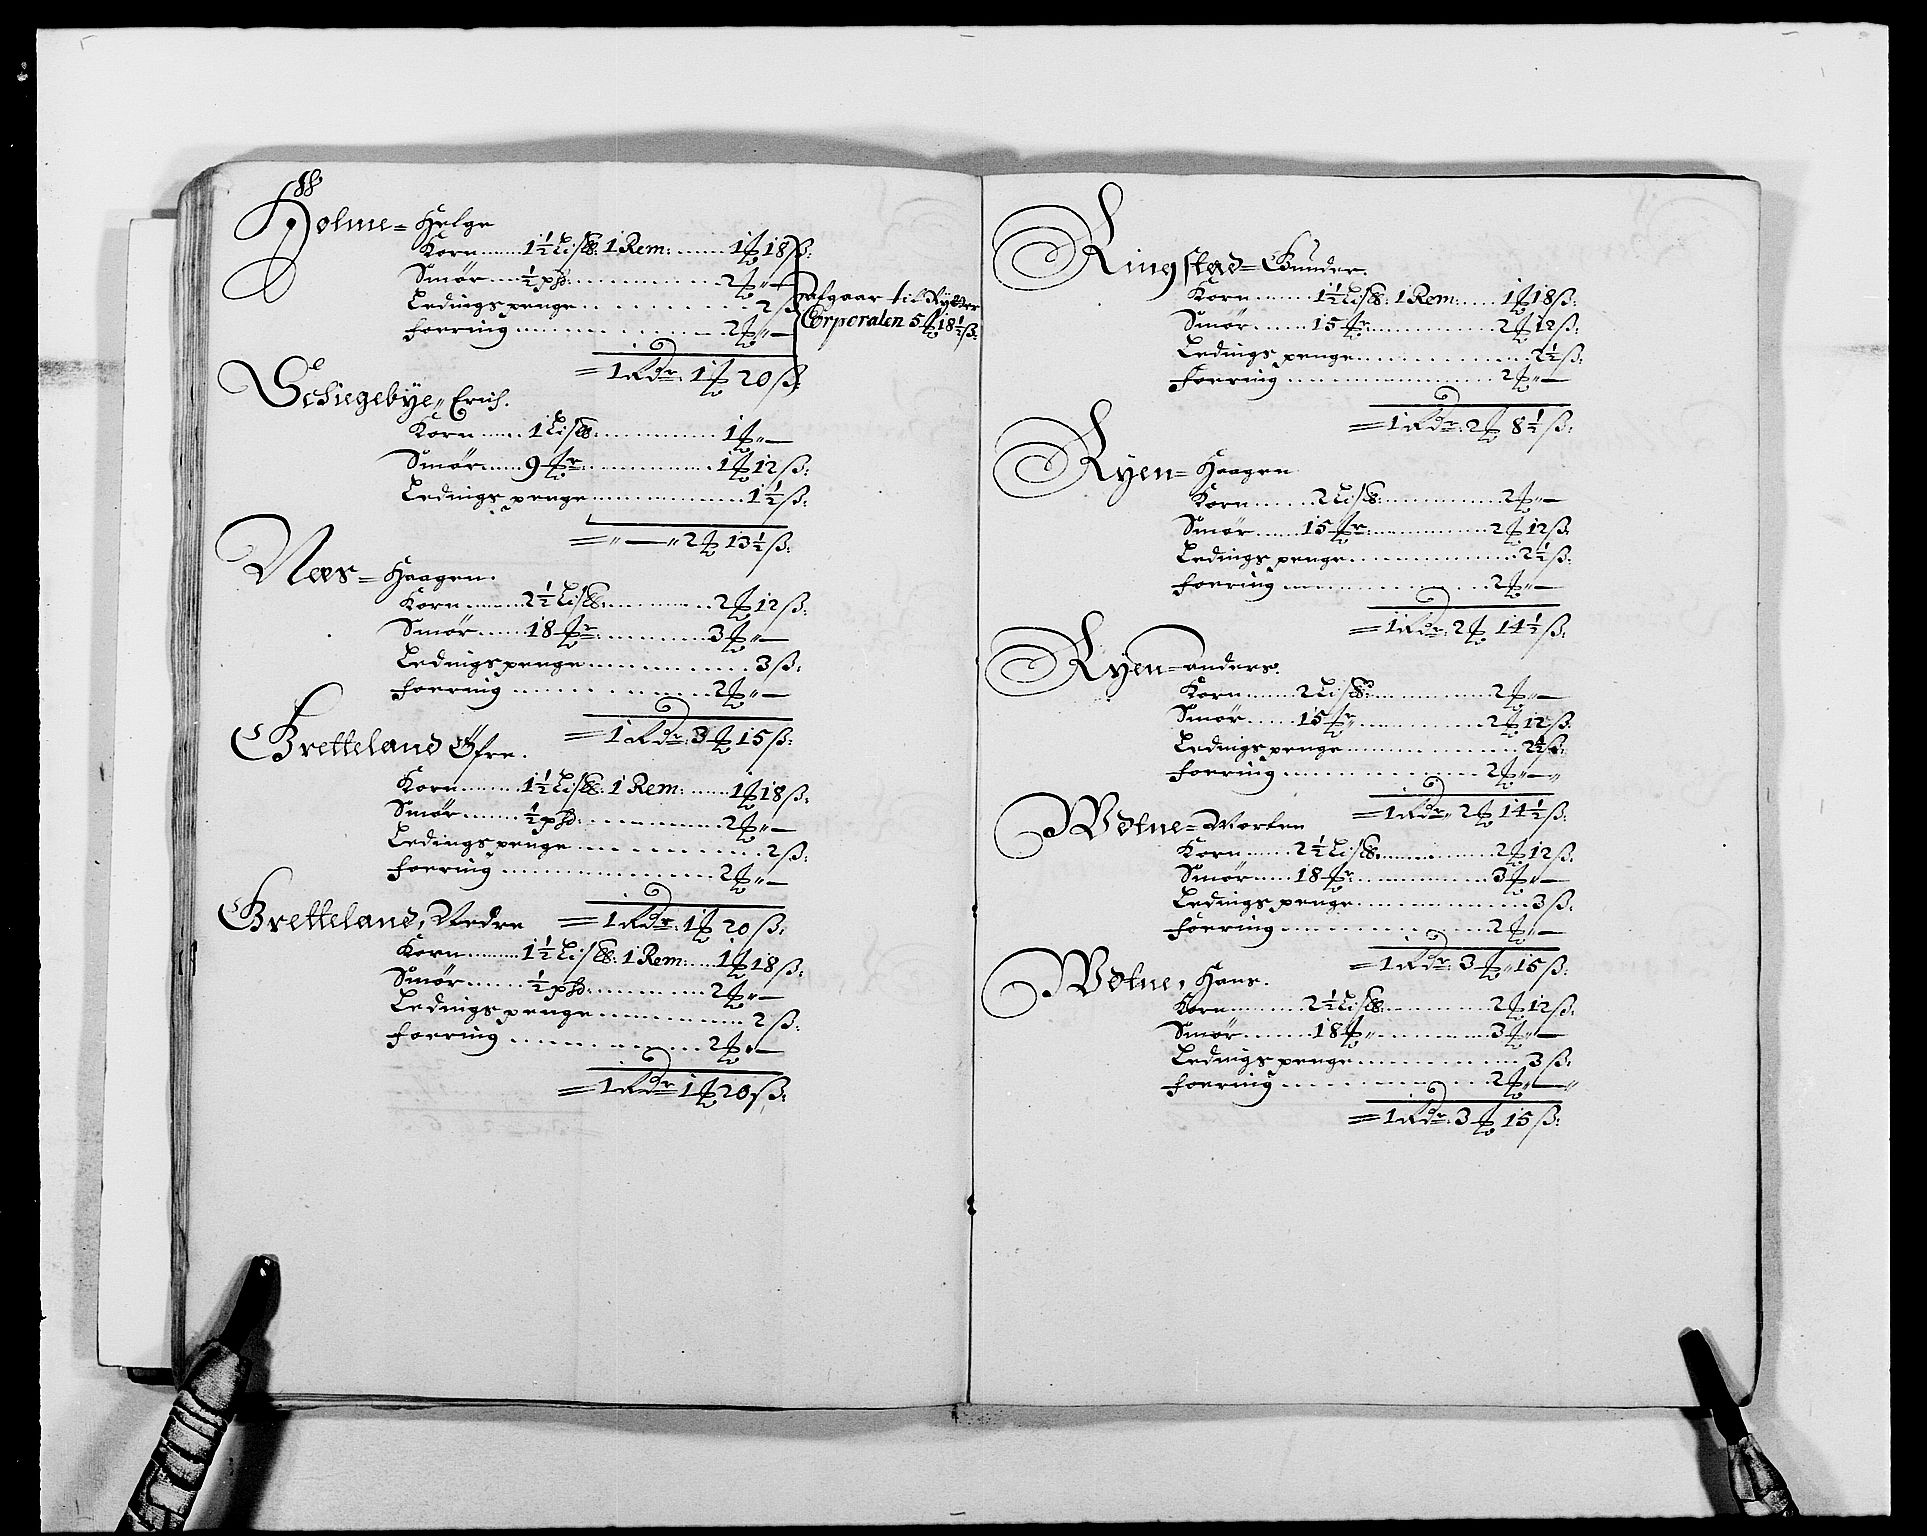 Holme= Helge
Korn...... 1½ Lispd: 1 Rem: ....... 1 ℔ 18 ß:
Smør.... ½ phd: ............ 2 ℔ " —
Ledingspenge ............ 2 ß
foering ............ 2 ℔ " —
afgaar til Rytter
Corporalen 5 ℔ 18½ ß:
= 1 Rdr: 1 ℔ 20 ß:
Schiegebÿe,, Erich.
Korn...... 1 Lispd: ............ 1 ℔ " —
Smør...... 9 ℔r: ............ 1 ℔ 12 ß:
Ledingspenge ............ 1½ ß:
= " — " 2 ℔ 13½ ß:
Næs= Haagen.
Korn....... 2½ Lispd: ............ 2 ℔ 12 ß:
Smør...... 18 ℔r: ............ 3 ℔ " —
Ledingspenge ............ 3 ß:
foering ............ 2 ℔ " —
= 1 Rdr: 3 ℔ 15 ß:
Bretteland Öfre.
Korn........ 1½ Lispd: 1 Rem: ...... 1 ℔ 18 ß:
Smør....... ½ phd: ............ 2 ℔ " —
Ledingspenge ............ 2 ß:
foering ............ 2 ℔ " —
= 1 Rdr: 1 ℔ 20 ß:
Bretteland, Nedre
Korn........ 1½ Lispd: 1 Rem: ..... 1 ℔ 18 ß:
Smør...... ½ phd: ............ 2 ℔ " —
Ledingspenge ............ 2 ß:
foering ............ 2 ℔ " —
= 1 Rdr 1 ℔ 20 ß:
Ringstad= Gunder.
Korn....... 1½ Lispd: 1 Rem: ..... 1 ℔ 18 ß:
Smør....... 15 ℔r: ............ 2 ℔ 12 ß:
Ledingspenge ............ 2½ ß:
foering ............ 2 ℔ " —
= 1 Rdr: 2 ℔ 8½ ß:
Ryen= Haagen
Korn....... 2 Lispd: ............ 2 ℔ " —
Smør...... 15 ℔r: ............ 2 ℔ 12 ß:
Ledingspenge ............ 2½ ß:
foering ............ 2 ℔ " —
= 1 Rdr: 2 ℔ 14½ ß:
Ryen= anders.
Korn....... 2 Lispd: ............ 2 ℔ " —
Smør...... 15 ℔r ............ 2 ℔ 12 ß:
Ledingspenge ............ 2½ ß:
foering ............ 2 ℔ " — "
= 1 Rdr " 2 ℔ 14½ ß:
Wötne= Morten
Korn...... 2½ Lispd: ............ 2 ℔ 12 ß:
Smør...... 18 ℔r: ............ 3 ℔ " —
Ledingspenge ............ 3 ß:
foering ............ 2 ℔ " —
= 1 Rdr: 3 ℔ " 15 ß:
Wötne, Hans.
Korn........ 2½ Lispd: ............ 2 ℔ 12 ß:
Smør........ 18 ℔ " ............ 3 ℔ " —
Ledingspenge ............ 3 ß:
foering ............ 2 ℔ " — "
= 1 Rdr: 3 ℔ 15 ß: